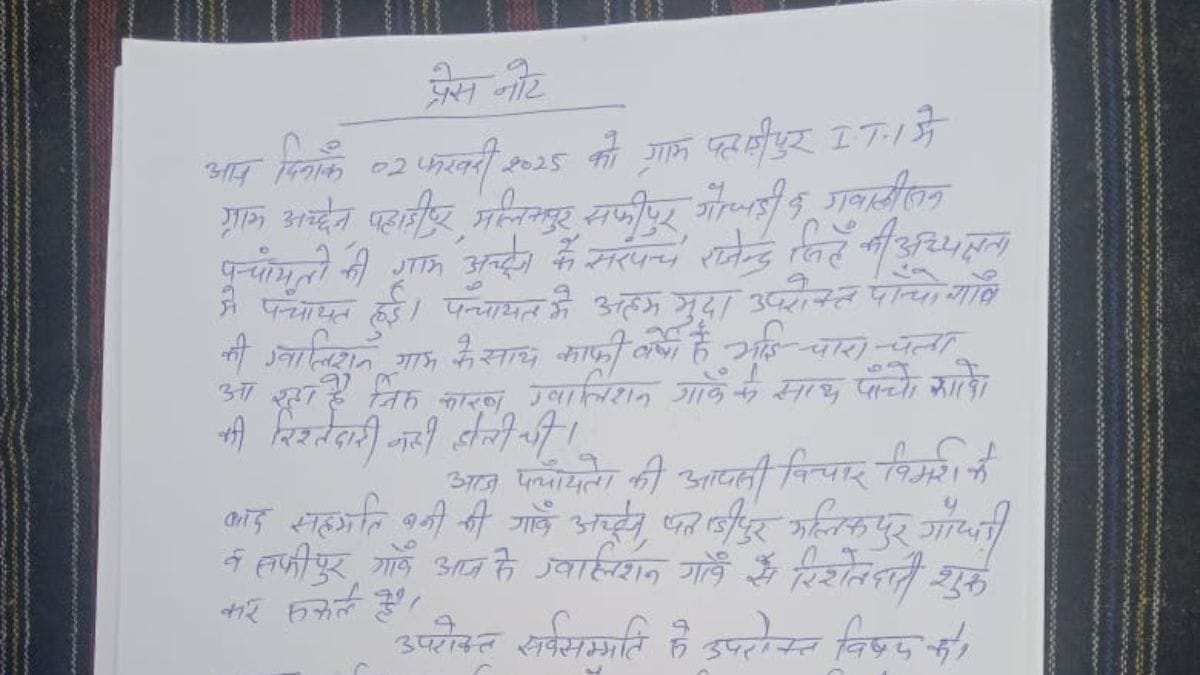 प्रेस नोट
आज दिनाँक 02 फरवरी 2025 को ग्राम पहाड़ीपुर I.T.I में
ग्राम अच्छेज, पहाड़ीपुर, मलिकपुर, सफीपुर, गौच्छी व गवालीसन
पचांयतो की ग्राम अच्छेज के सरपंच राजेन्द्र सिहँ की अध्यक्षता
मे पंचायत हुई। पंचायत मे अहम मुद्दा उपरोक्त पाँचो गाँव
की ग्वालिशन ग्राम के साथ काफी वर्षो से भाई-चारा चला
आ रहा है जिस कारण ग्वालिशन गाँव के साथ पाँचो गावो
की रिश्तेदारी नही होती थी।
आज पचाँयतो की आपसी विचार विमर्श के
बाद सहमति बनी की गाँव अच्छेज, पहाडीपुर मलिकपुर, गौच्छी
व सफीपुर गाँव आज से ग्वालिशन गाँव से रिशतेदारी शुरू
कर सकते है।
उपरोक्त सर्वसम्मति से उपरोक्त विषय को